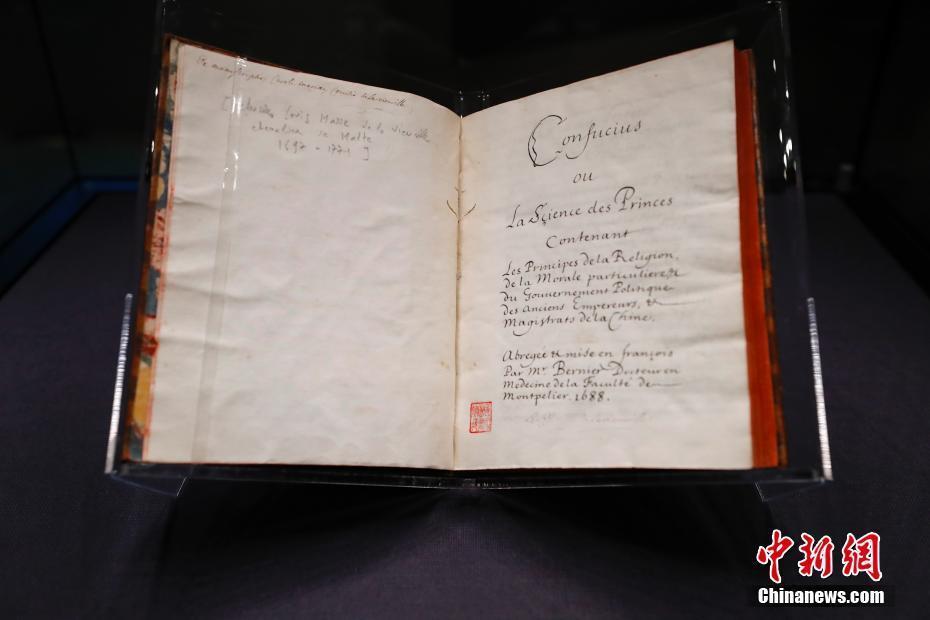 chevalier de Malte
1697 - 1771 ]
Confucius
ou
La Sçience des Princes
Contenant
Les Principes de la Religion,
de la Morale particuliere, &
du Gouvernement Politique
des Anciens Empereurs, &
Magistrats de la Chine.
Abregée & mise en françois
Par Mr. Bernier Docteur en
Medecine de la Faculté de
Montpelier. 1688.
中新网
Chinanews.com